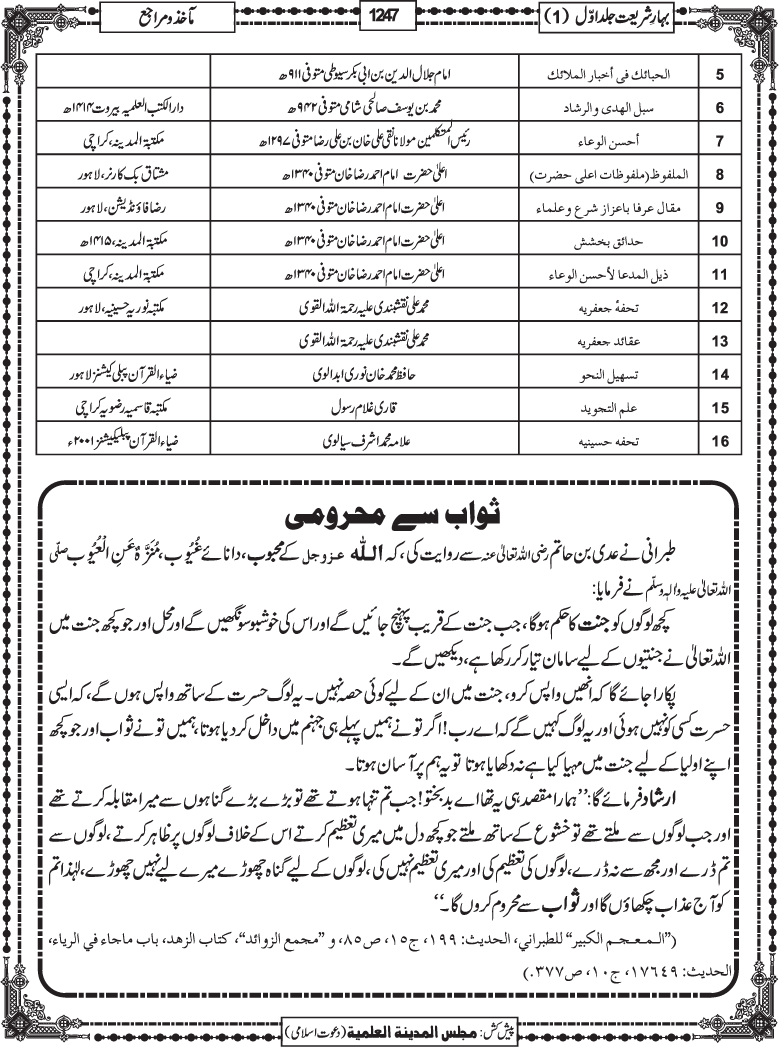 بہارِ شریعت جلد اوّل (1)
1247
مآخذ و مراجع
5 الحبائك فى أخبار الملائك امام جلال الدین بن ابی بکر سیوطی متوفی ۹۱۱ھ
6 سبل الهدى والرشاد محمد بن یوسف صالحی شامی متوفی ۹۴۲ھ دار الکتب العلمیہ بیروت ۱۴۱۴ھ
7 أحسن الوعاء رئیس المتکلمین مولانا نقی علی خان بن علی رضا متوفی ۱۲۹۷ھ مکتبۃ المدینہ، کراچی
8 الملفوظ (ملفوظات اعلی حضرت) اعلیٰ حضرت امام احمد رضا خان متوفی ۱۳۴۰ھ مشتاق بک کارنر، لاہور
9 مقال عرفا باعزاز شرع وعلماء اعلیٰ حضرت امام احمد رضا خان متوفی ۱۳۴۰ھ رضا فاؤنڈیشن، لاہور
10 حدائق بخشش اعلیٰ حضرت امام احمد رضا خان متوفی ۱۳۴۰ھ مکتبۃ المدینہ، ۱۴۱۵ھ
11 ذيل المدعا لأحسن الوعاء اعلیٰ حضرت امام احمد رضا خان متوفی ۱۳۴۰ھ مکتبۃ المدینہ، کراچی
12 تحفۂ جعفریه محمد علی نقشبندی علیہ رحمۃ اللہ القوی مکتبہ نوریہ حسینیہ، لاہور
13 عقائد جعفریه محمد علی نقشبندی علیہ رحمۃ اللہ القوی
14 تسهيل النحو حافظ محمد خان نوری ابدالوی ضیاء القرآن پبلی کیشنز لاہور
15 علم التجويد قاری غلام رسول مکتبہ قاسمیہ رضویہ کراچی
16 تحفه حسینیه علامہ محمد اشرف سیالوی ضیاء القرآن پبلیکیشنز ۲۰۰۱ء
ثواب سے محرومی
طبرانی نے عدی بن حاتم رضی اللہ تعالیٰ عنہ سے روایت کی، کہ اللہ عزوجل کے محبوب، دانائے غُیُوب، مُنَزَّہٌ عَنِ الْعُیُوب صلّی
اللہ تعالیٰ علیہ واٰلہٖ وسلّم نے فرمایا:
کچھ لوگوں کو جنت کا حکم ہوگا، جب جنت کے قریب پہنچ جائیں گے اور اس کی خوشبو سونگھیں گے اور محل اور جو کچھ جنت میں
اللہ تعالیٰ نے جنتیوں کے لیے سامان تیار کر رکھا ہے، دیکھیں گے۔
پکارا جائے گا کہ انھیں واپس کرو، جنت میں ان کے لیے کوئی حصہ نہیں۔ یہ لوگ حسرت کے ساتھ واپس ہوں گے، کہ ایسی
حسرت کسی کو نہیں ہوئی اور یہ لوگ کہیں گے کہ اے رب! اگر تو نے ہمیں پہلے ہی جہنم میں داخل کردیا ہوتا، ہمیں تو نے ثواب اور جو کچھ
اپنے اولیا کے لیے جنت میں مہیا کیا ہے نہ دکھایا ہوتا تو یہ ہم پر آسان ہوتا۔
ارشاد فرمائے گا: ’’ہمارا مقصد ہی یہ تھا اے بد بختو! جب تم تنہا ہوتے تھے تو بڑے بڑے گناہوں سے میرا مقابلہ کرتے تھے
اور جب لوگوں سے ملتے تھے تو خشوع کے ساتھ ملتے جو کچھ دل میں میری تعظیم کرتے اس کے خلاف لوگوں پر ظاہر کرتے، لوگوں سے
تم ڈرے اور مجھ سے نہ ڈرے، لوگوں کی تعظیم کی اور میری تعظیم نہیں کی، لوگوں کے لیے گناہ چھوڑے میرے لیے نہیں چھوڑے، لہٰذا تم
کو آج عذاب چکھاؤں گا اور ثواب سے محروم کروں گا۔‘‘
(”المعجم الكبير“ للطبراني، الحديث: ۱۹۹، ج۱۵، ص۸۵، و ”مجمع الزوائد“، كتاب الزهد، باب ماجاء في الرياء،
الحديث: ۱۷۶۴۹، ج۱۰، ص۳۷۷.)
پیش کش: مجلس المدینة العلمیة (دعوت اسلامی)